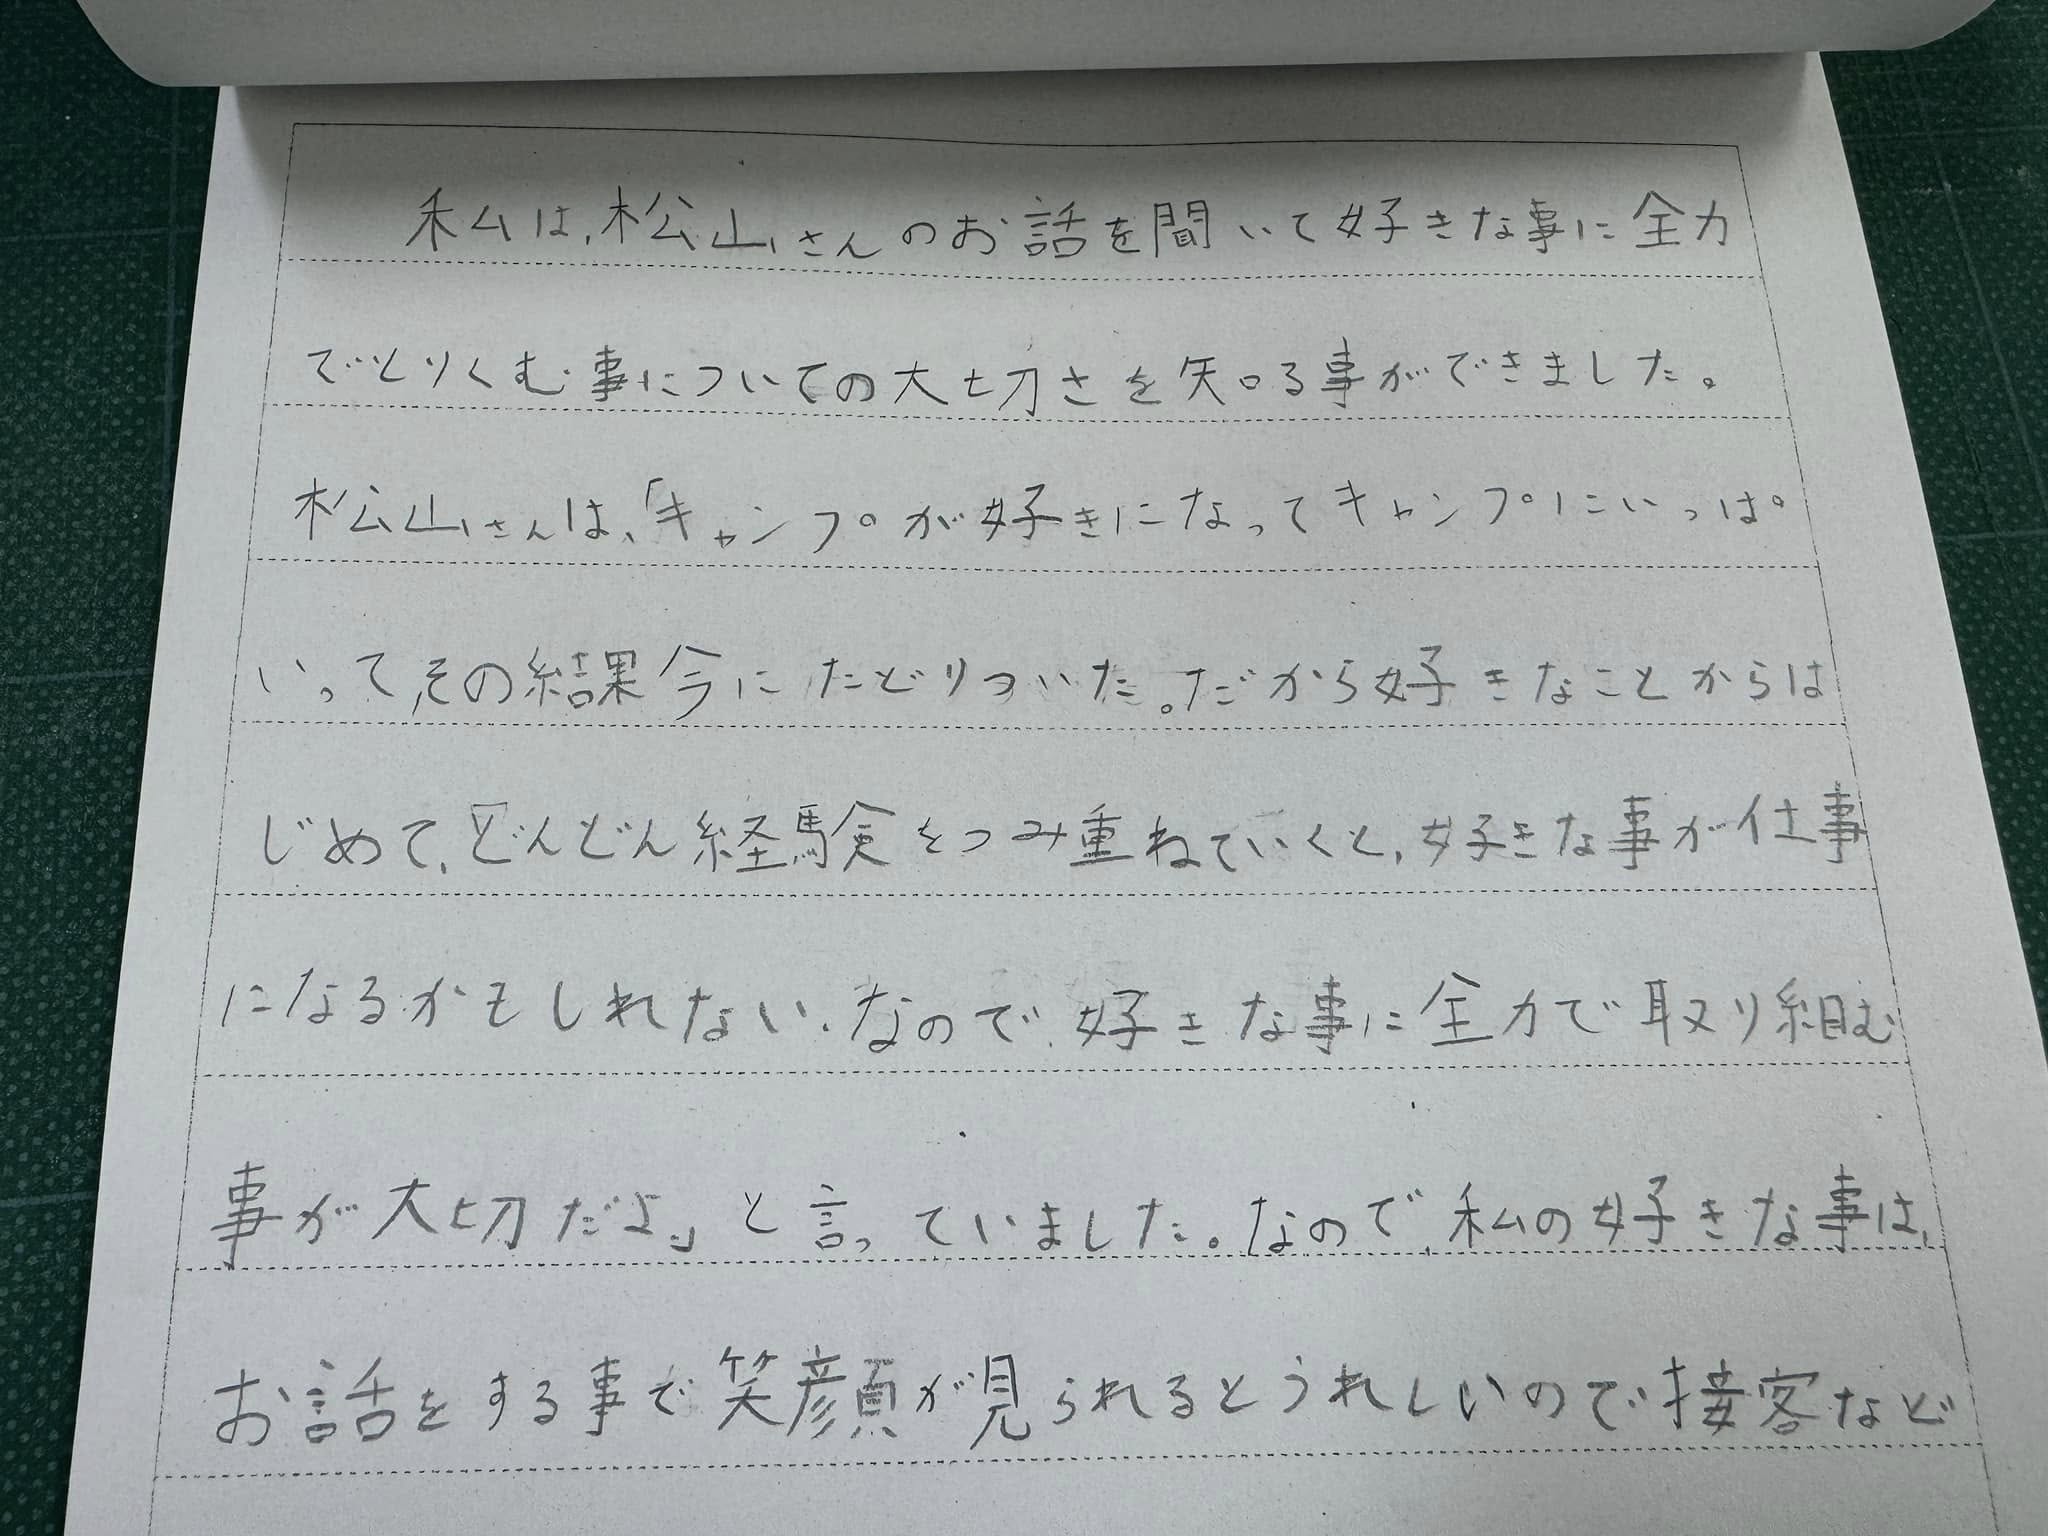 私は、松山さんのお話を聞いて好きな事に全力
でとりくむ事についての大切さを知る事ができました。
松山さんは、「キャンプが好きになってキャンプにいっぱ
いって、その結果今にたどりついた。だから好きなことからは
じめて、どんどん経験をつみ重ねていくと、好きな事が仕事
になるかもしれない、なので、好きな事に全力で取り組む
事が大切だよ。」と言っていました。なので、私の好きな事は、
お話をする事で笑顔が見られるとうれしいので接客など